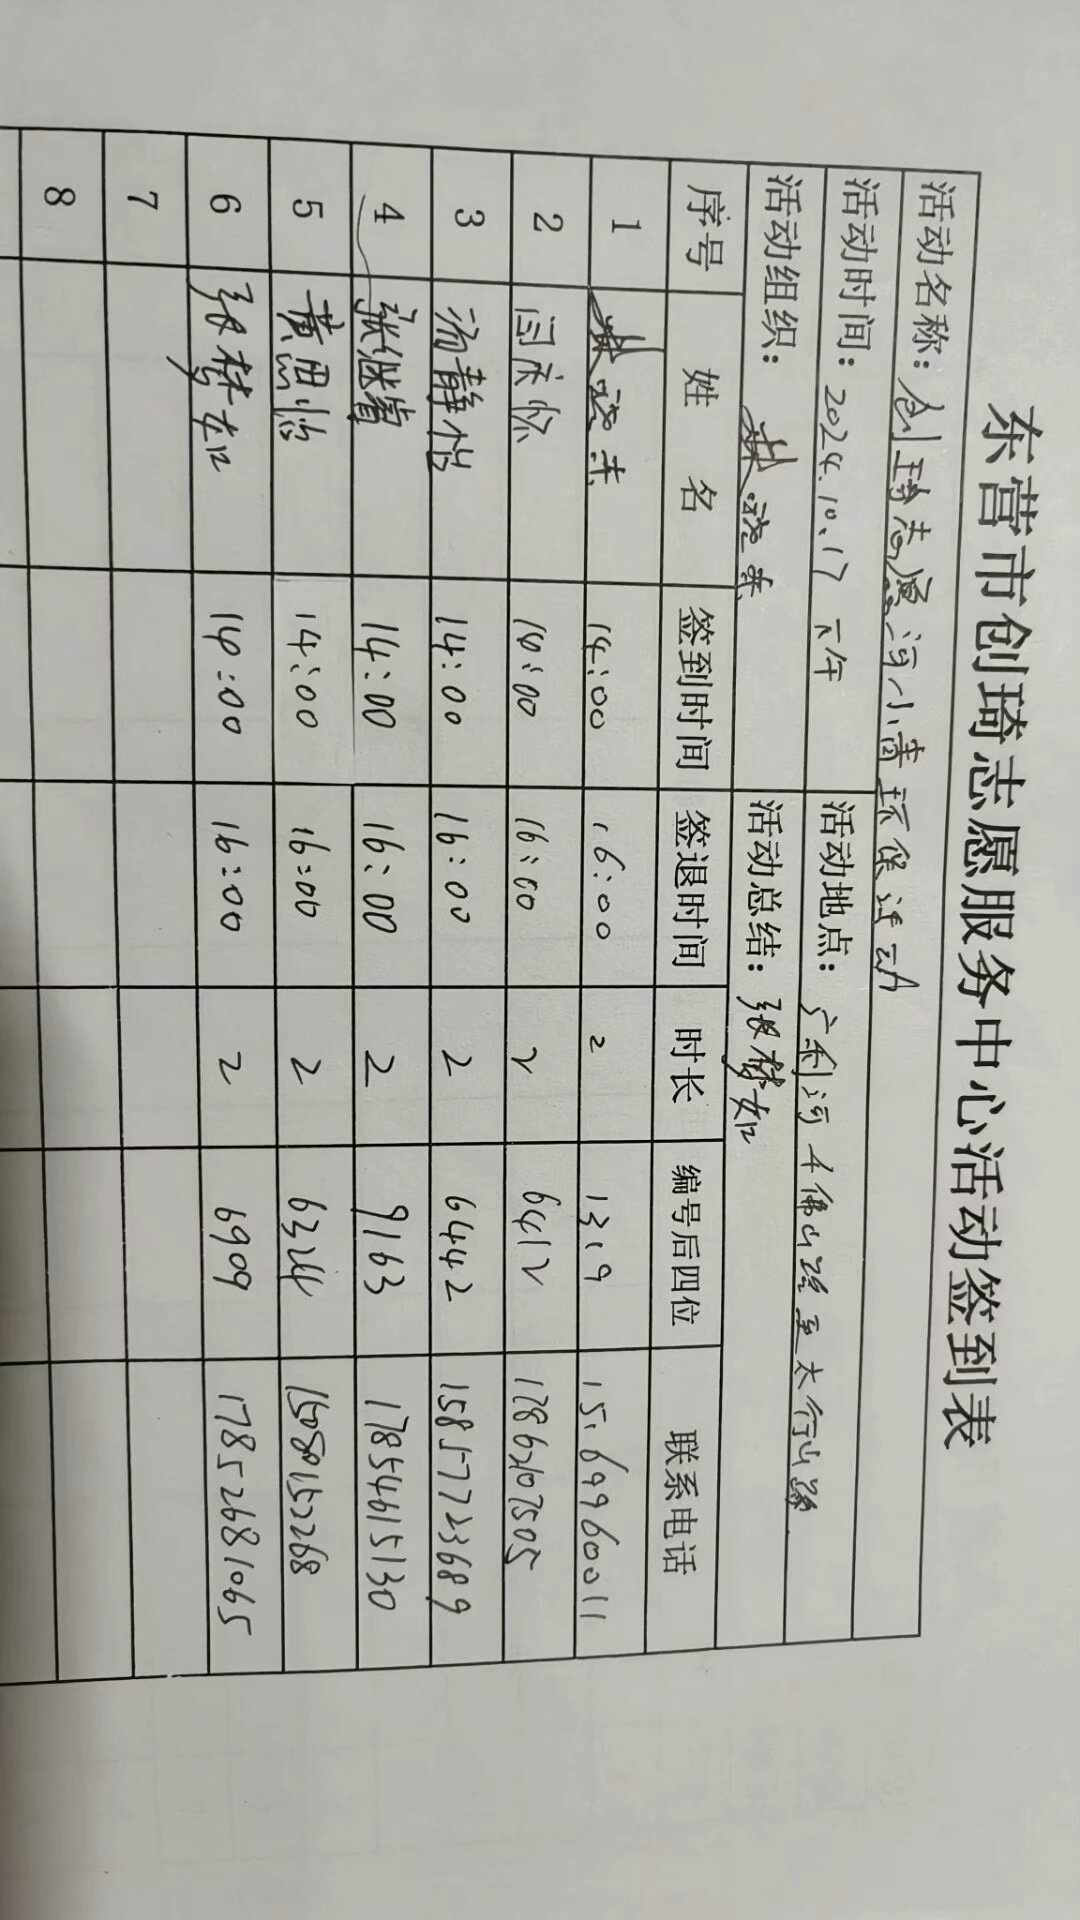 东营市创琦志愿服务中心活动签到表
活动名称：创琦志愿河小青环保活动
活动时间：2024.10.17 下午 活动地点：广利河千佛山路至太行山路
活动组织： 活动总结：张梦如
序号 姓名 签到时间 签退时间 时长 编号后四位 联系电话
1 14:00 16:00 2 1319 15169960011
2 14:00 16:00 2 6412 17862107505
3 汤静怡 14:00 16:00 2 6442 15857723689
4 张继 14:00 16:00 2 9163 17854615130
5 黄思怡 14:00 16:00 2 6324 15058152268
6 张梦如 14:00 16:00 2 6909 17852681065
7
8